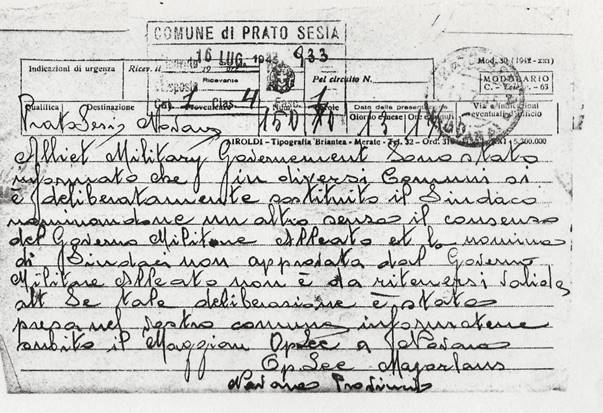 COMUNE di PRATO SESIA
16 LUG. 933
Indicazioni di urgenza
Ricevente
Pel circuito N.
Mod. 30 (1942-XXI)
MODULARIO
63
Qualifica Destinazione
Data della
Giorno e mese
Via e indicazioni
eventuali d'ufficio
Prato Sesia Novara 150 13
AIROLDI - Tipografia Briantea - Merate - 5.300.000
Alliet Military Governement Sono stato
informato che in diversi Comuni si
è deliberatamente sostituito il Sindaco
nominandone un altro senza il consenso
del Governo Militare Alleato et la nomina
di Sindaci non approvata dal Governo
Militare Alleato non è da ritenersi valida
alt Se tale deliberazione è stata
presa nel vostro comune informatene
subito il Maggior a Novara
Novara Province